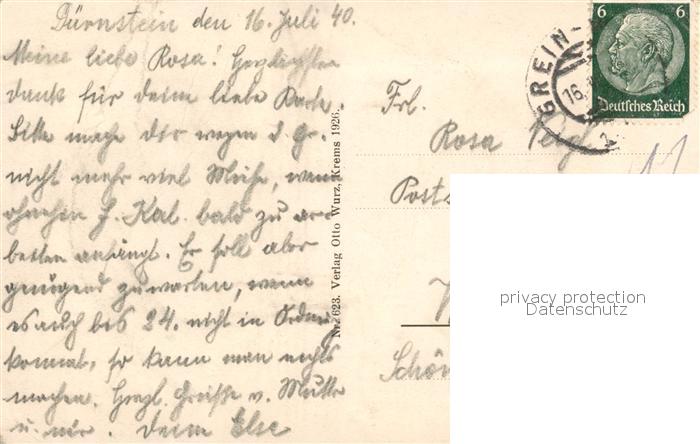 Dürnstein den 16. Juli 40.
Meine liebe Rosa! Herzlichsten
dank für deine liebe Karte
Bitte mache dir wegen d. Gr.
nicht mehr viel Mühe, wenn
ohnehin H. Kal. bald zu ar-
beiten anfängt. Er soll aber
genügend zuwarten, wenn
es auch bis 24. nicht in Ordnung
kommt, so kann man nichts
machen. Herzl. Grüße v. Mutter
u. mir. Deine Else
Nr. 623. Verlag Otto Wurz, Krems 1926.
6 6
Deutsches Reich
GREIN-
16.
Frl.
Rosa
Posts
Schön
privacy protection
Datenschutz